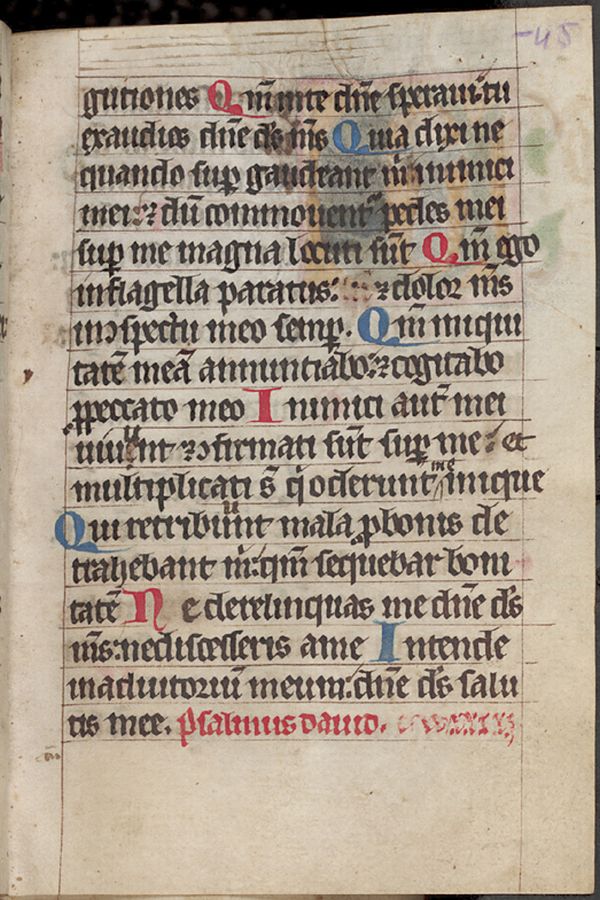 45
gutiones Qm̄ in te dn̄e speraui: tu
exaudies dn̄e ds̄ ms̄ Quia dixi ne
quando sup̱ gaudeant m̄ inimici
mei: ⁊ dū commouent᷑ pedes mei
sup̱ me magna locuti sūt Qm̄ ego
in flagella paratus: ⁊ dolor ms̄
in ↄspectu meo semp̱. Qm̄ iniqui
tatē meā annuntiabo: ⁊ cogitabo
ꝓ peccato meo Inimici aut̄ mei
uiuunt ⁊ ↄfirmati sūt sup̱ me: et
multiplicati s̄ q̇ oderunt me inique
Qui retribuunt mala ꝓ bonis de
trahebant m̄: qm̄ sequebar boni
tatē Ne derelinquas me dn̄e ds̄
ms̄: ne discesseris a me Intende
in adiutoriū meum: dn̄e ds̄ salu
tis mee. Psalmus dauid.